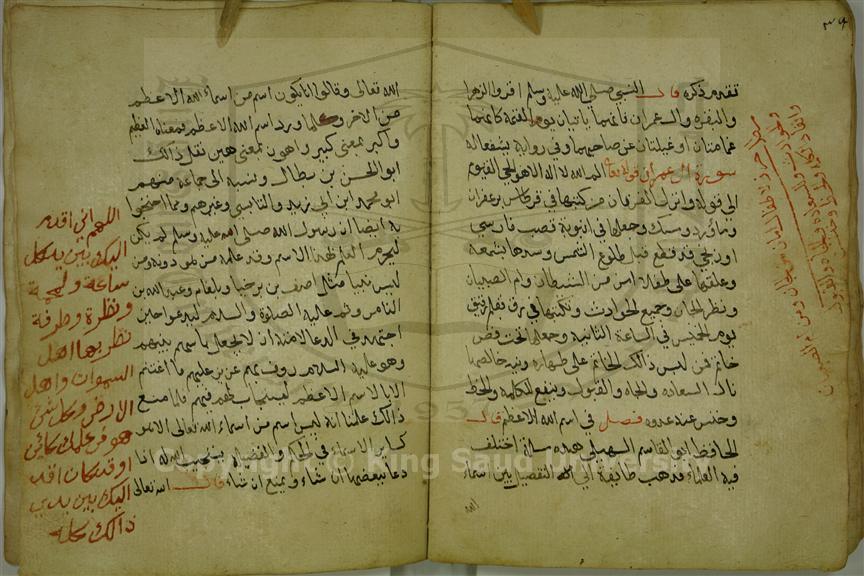 ٣٩
تقدم ذكره قال النبي صلى الله عليه وسلم اقروا الزهرا
والبقره وال عمران فانهما ياتيان يوم القيمة كانهما
غمامتان او غيايتان عن صاحبهما وفي رواية يشفعا له
سورة ال عمران قوله تعا الم الله لا اله الا هو الحي القيوم
الى قوله وانزل الفرقان من كتبها في قرطاس بزعفران
وماورد ومسك وجعلها في انبوبة قصب فارسي
قد قطع قبل طلوع الشمس وسدها بشمعه
وعلقها على طفل امن من الشيطان وام الصبيان
ونظر الجان وجميع الحوادث وتكتبها في رق
يوم الخميس في الساعة الثانية وجعلها تحت فص
خاتم فمن لبس ذالك الخاتم على طهاره ونيه خالصها
نال السعاده والجاه والقبول وينفع للكلمه والحظ
عدوه فصل في اسم الله الاعظم قال
الحافظ ابو القاسم السهيلي هذه مسالة اختلف
فيه العلماء فذهب طايفة الى التفضيل بين اسماء
الله
الله تعالى وقالوا لا يكون اسم من اسماء الله الاعظم
من الاخر وكلما ورد اسم الله الاعظم فمعناه العظيم
واكبر بمعنى كبير واهون بمعنى هين نقل ذالك
ابو الحسن بن بطال ونسبه الى جماعة منهم
ابو محمد ابن ابي زيد والقابسي وغيرهم ومما احتجوا
به ايضا ان رسول الله صلى الله عليه وسلم لم يكن
ليحرم العلم بهذا الاسم وقد علمه من لم دونه ومن
ليس نبيا مثل اصف بن برخيا وبلعام وعبد الله بن
التامر ولم عليه الصلوة والسلام ليدعو حين
اجتهد في الدعا لامته ان لا يجعل باسهم بينهم
وهو عليه السلام روف بهم عزيز عليه ما عنتم
الا بالاسم الاعظم ليستجاب لهم فيهم فلما منع
ذالك علمنا انه ليس اسم من اسماء الله تعالى الا هو
كساير الاسماء في الحكم والفضيلة يستجيب الله اذا
دعا ببعضها ان شاء ويمنع ان شاء قال الله تعالى
اللهم اني اقدم
اليك بين يدي كل
ساعة ولمحة
ونظرة وطرفة
نظر بها اهل
السموات واهل
الارض وكل شيء
هو في علمك كاين
او قد كان اقدم
اليك بين يدي
ذالك كله
Copyright © King Saud University